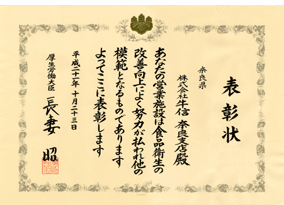 表彰状
奈良県
株式会社牛信 奈良支店殿
あなたの営業施設は食品衛生の
改善向上によく努力が払われ他の
模範となるものであります
よってここに表彰します
平成二十一年十月二十三日
厚生労働大臣 長妻 昭